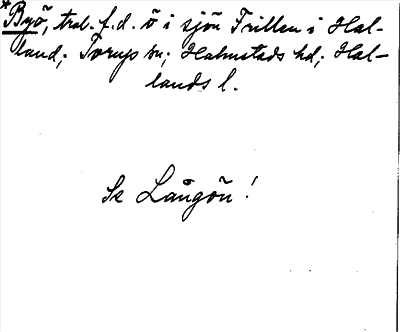 *Byö, trol. f.d. ö i sjön Frillen i Hal-
land; Torups sn; Halmstads hd; Hal-
lands l.
Se Långön!